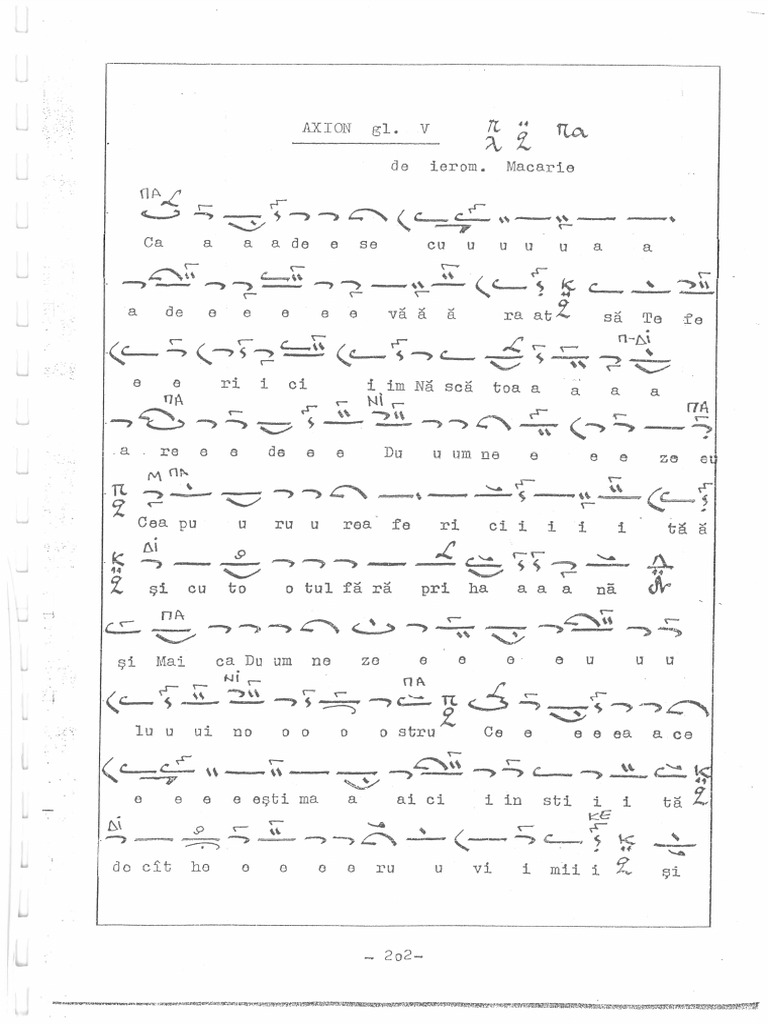 AXION gl. V π λ q πα
de ierom. Macarie
ΠΑ
Ca a a a de e se cu u u u u a a
a de e e e e e vă ă ă ra at să Te fe
π-Δi
e e ri i ci i im Nă scă toa a a a a
ΠΑ Ni ΠΑ
a re e e de e e Du u um ne e e e ze eu
M ΠΑ
Cea pu u ru u rea fe ri ci i i i i tă ă
Δi
și cu to o tul fă ră pri ha a a a nă
ΠΑ
și Mai ca Du um ne ze e e e e u u u
Ni ΠΑ
lu u ui no o o o o stru Ce e e e ea a ce
e e e e ești ma a ai ci i in sti i i tă
Δi KE
de cît he e e e e ru u vi i mii i și
- 202-